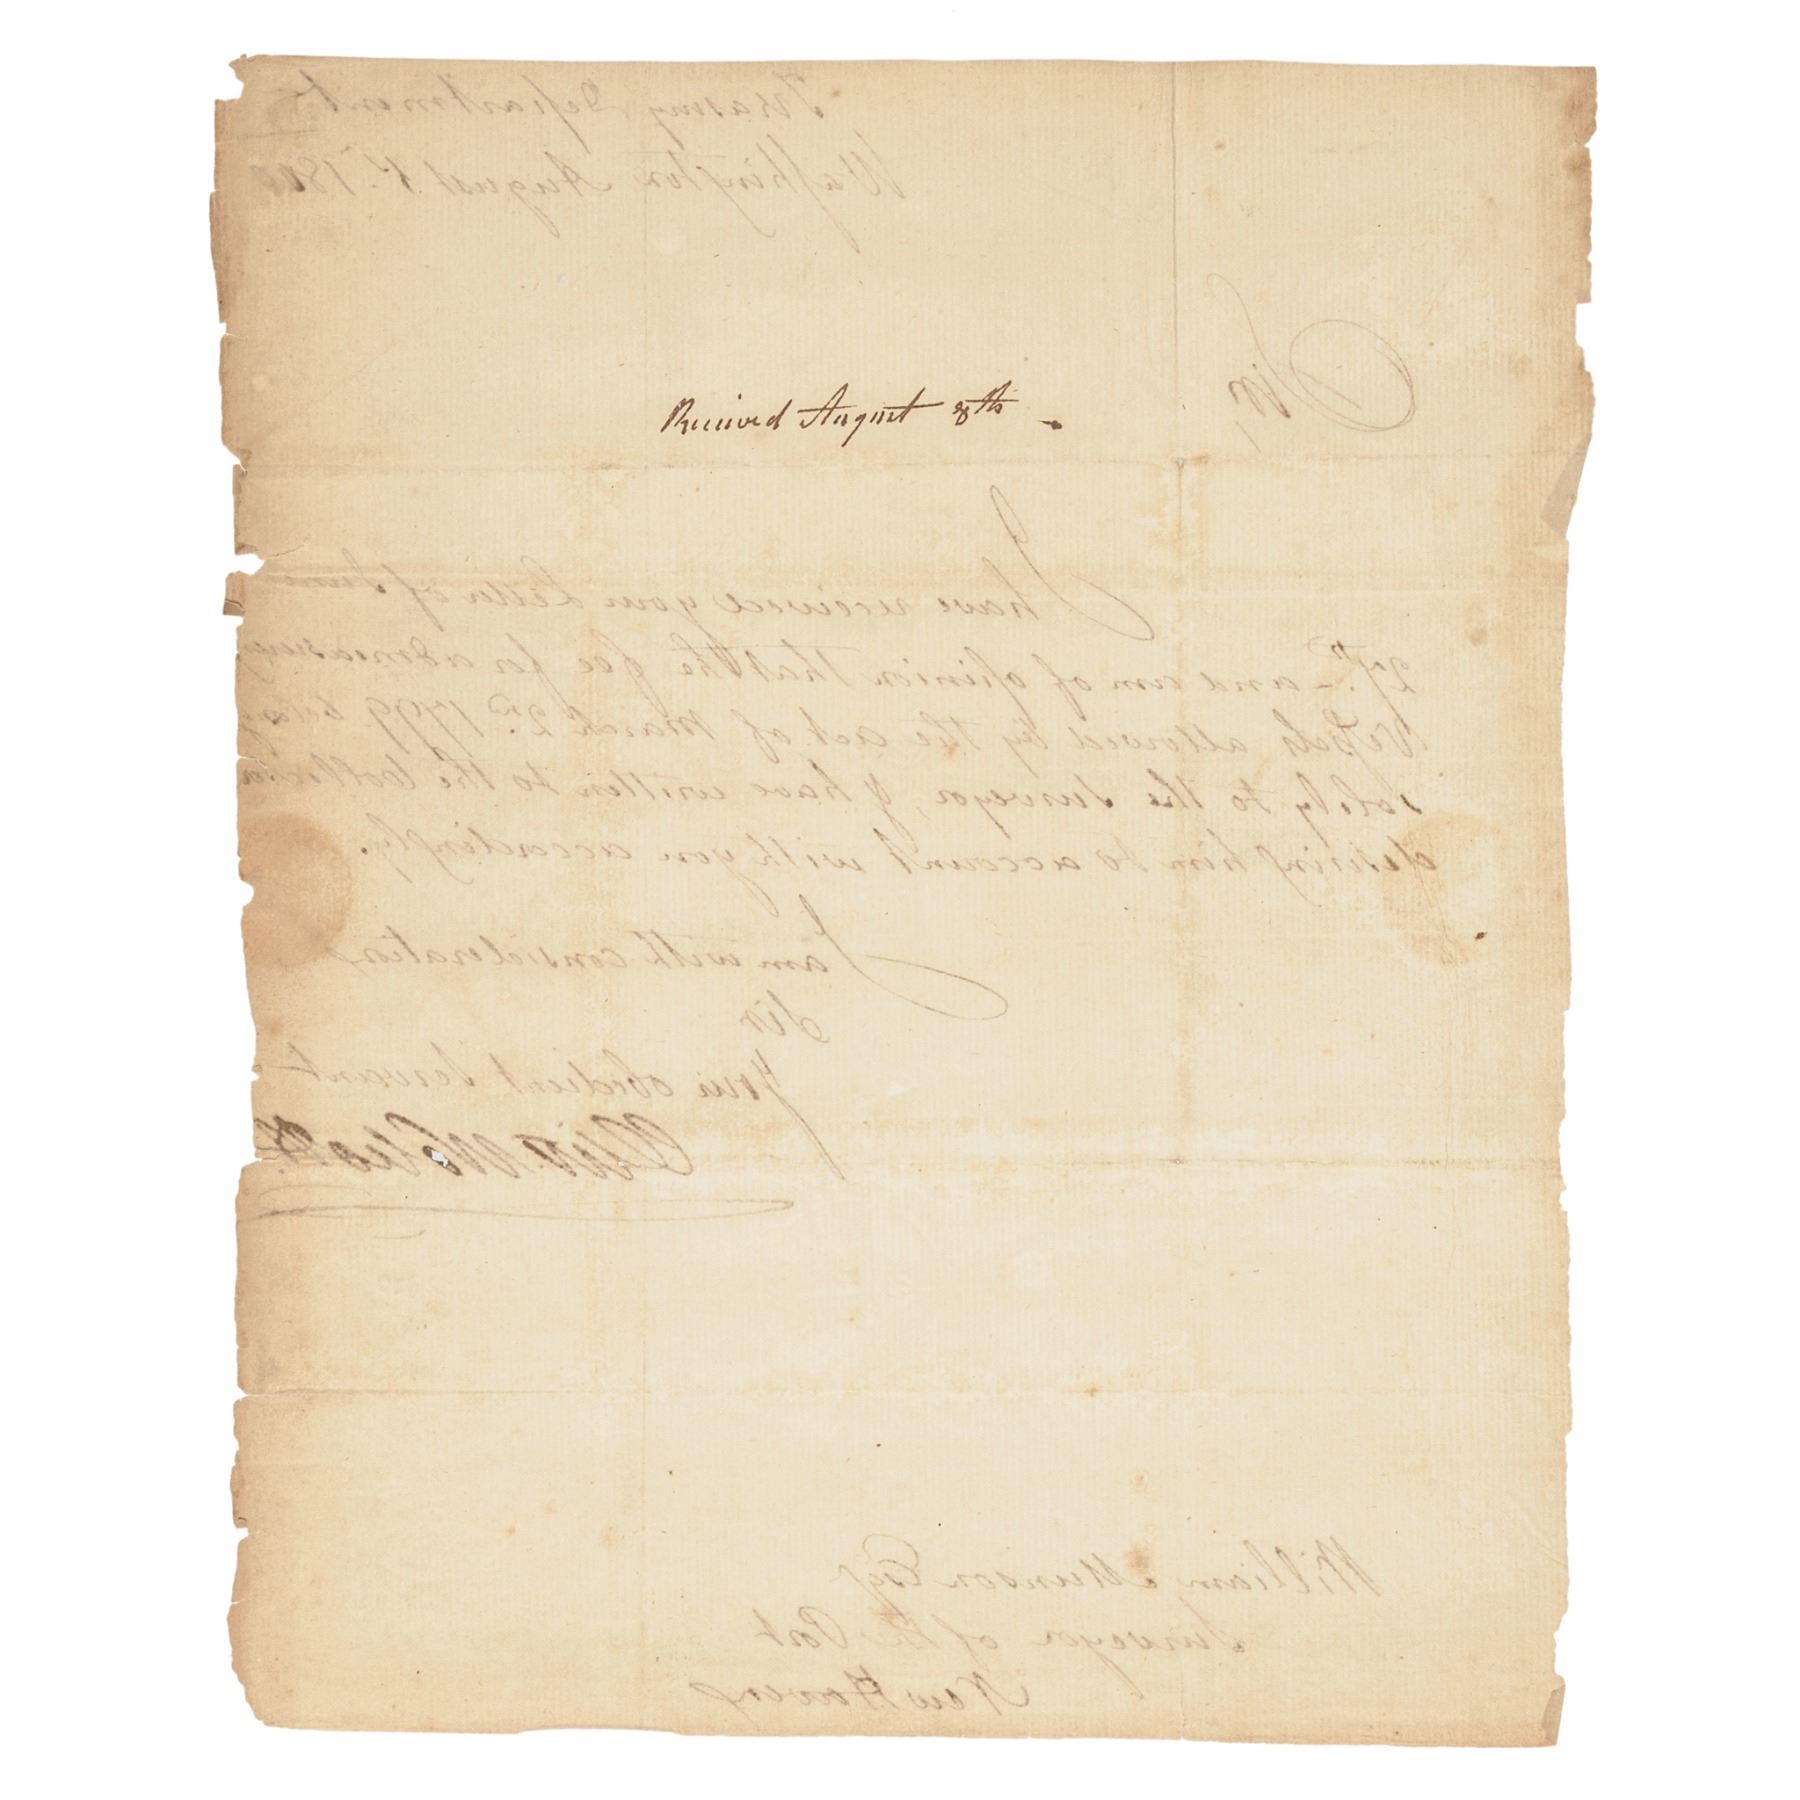 Treasury Department
Washington August 1st. 1800
Sir,
Received August 8th.
I have received your Letter of June
27th. - and am of opinion that the fee for admeasuring
Vessels allowed by the act of March 2nd. 1799 belong
solely to the Surveyor, & have written to the Collector
desiring him to account with you accordingly.
I am with consideration
Sir
Your obedient Servant
Oliv. Wolcott.
William Munson Esqr
Surveyor of the Port
New Haven